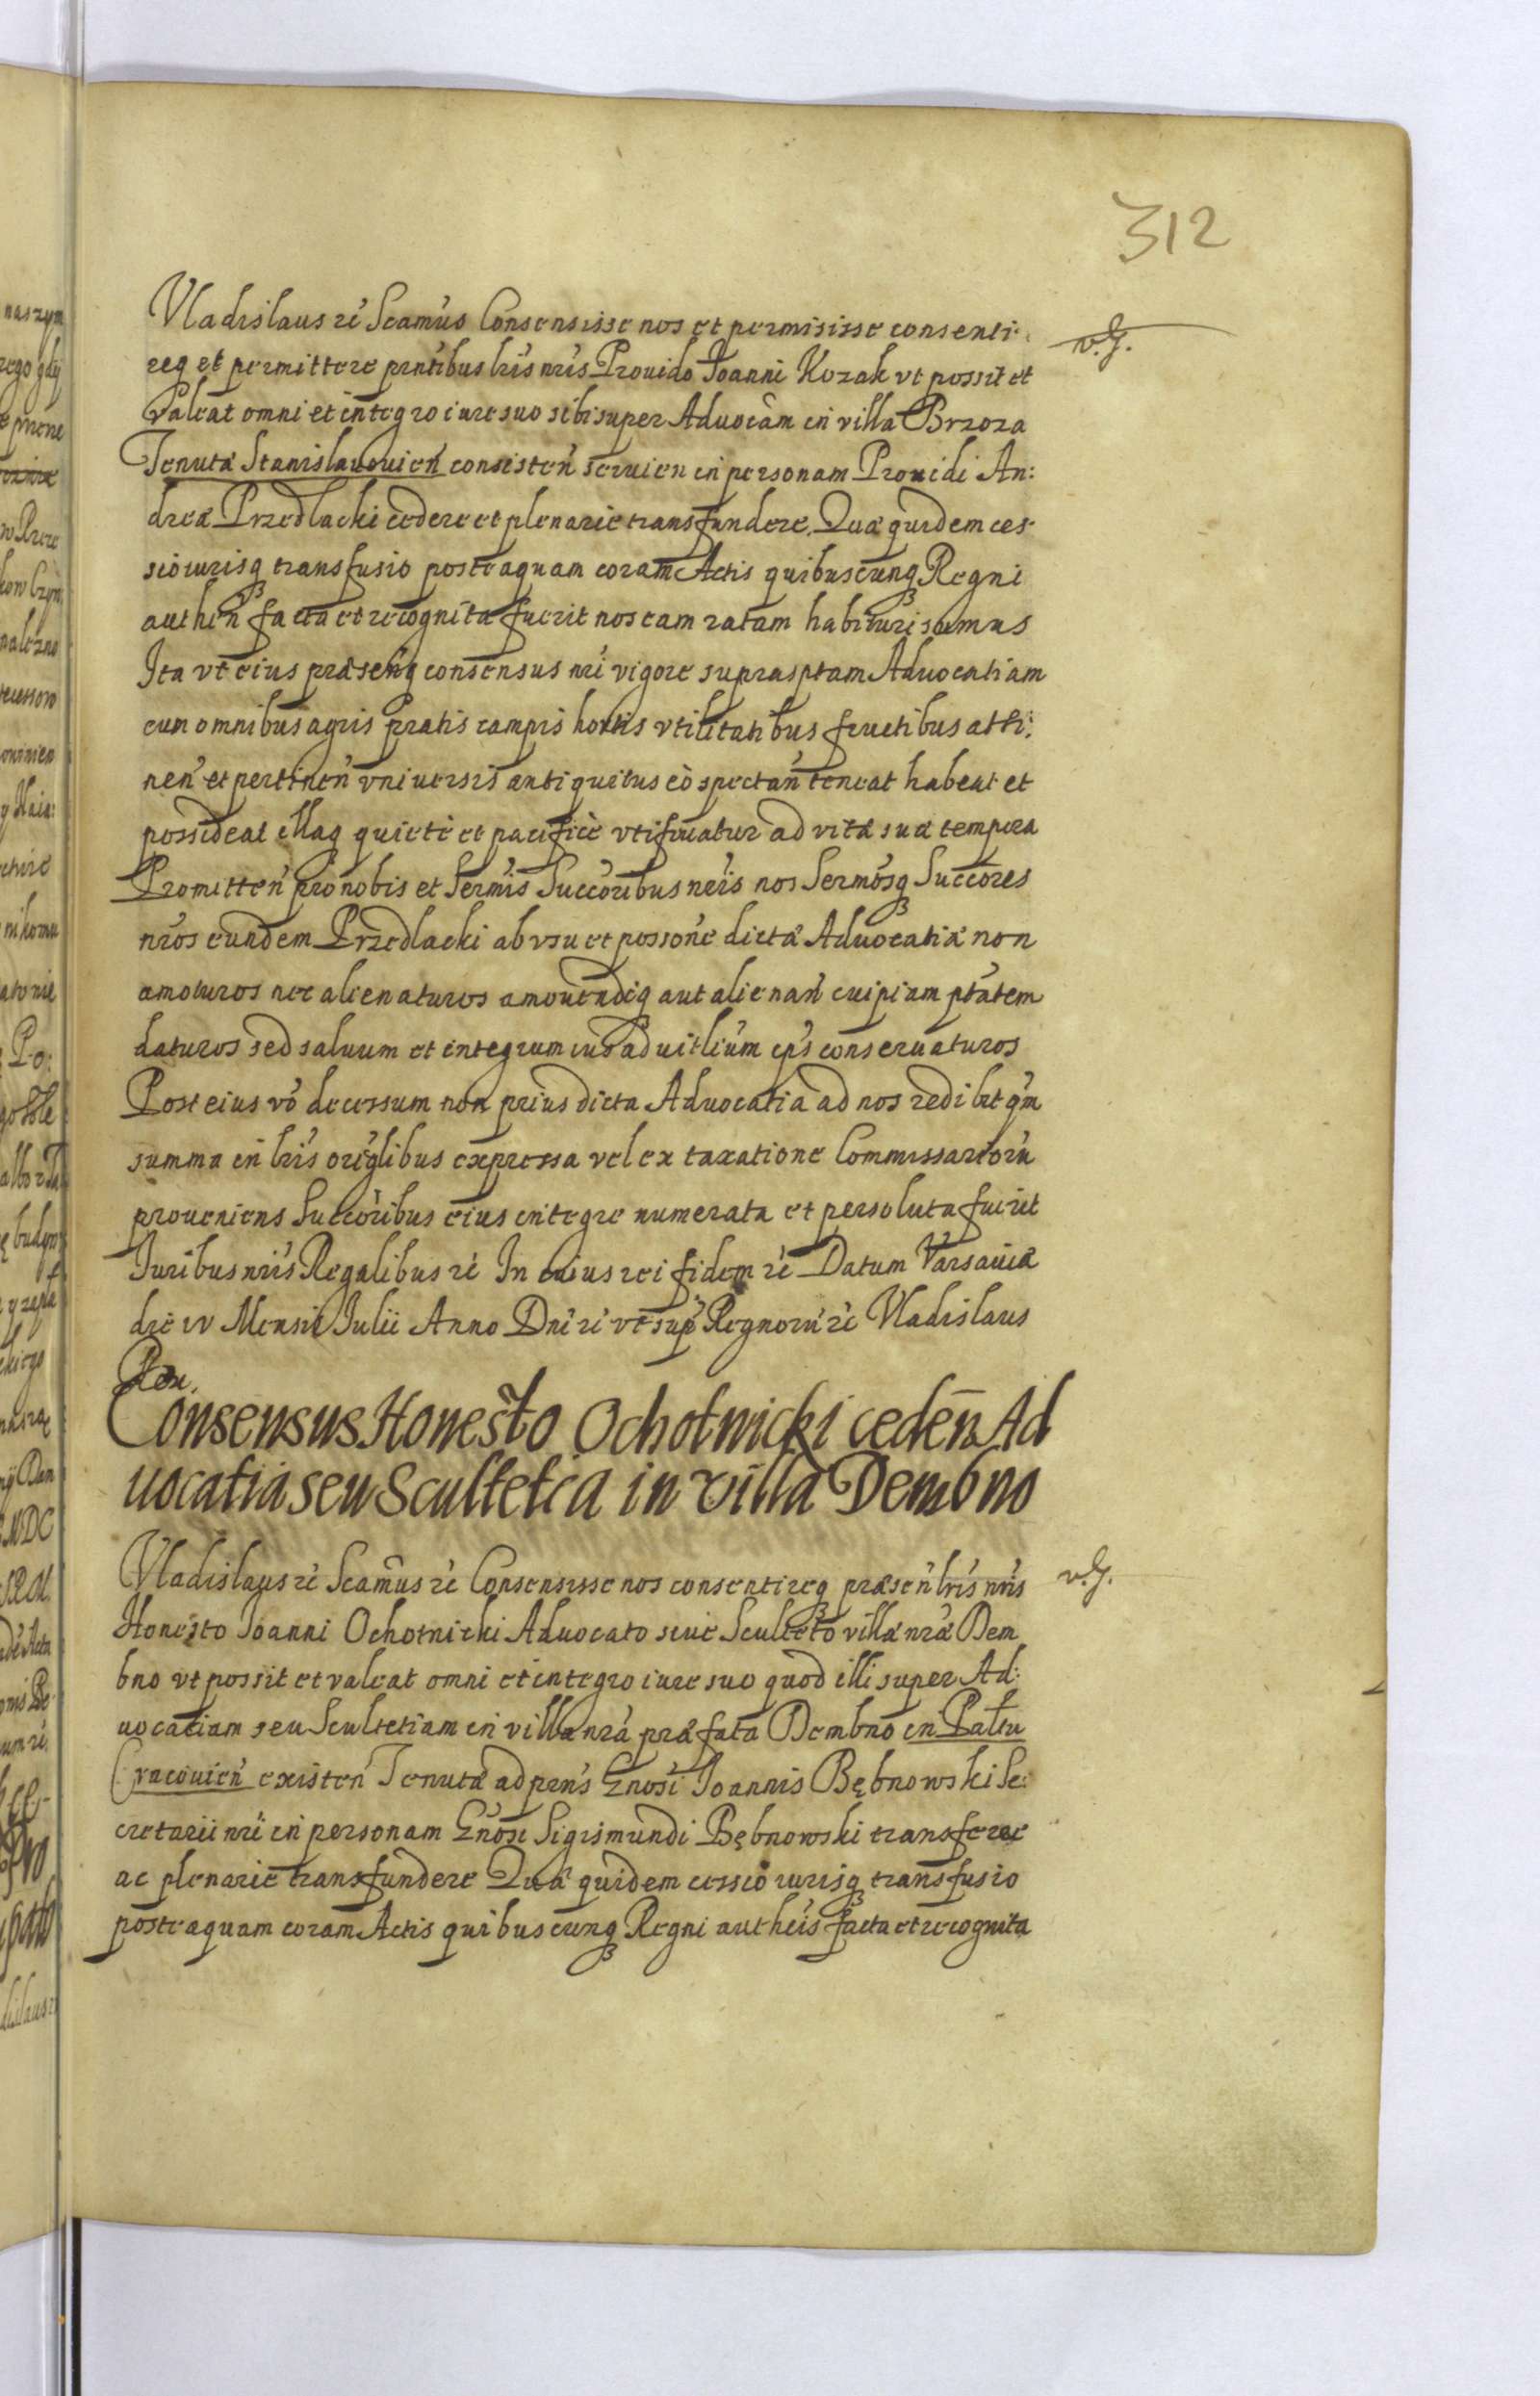 312
Vladislaus rė Scamus Consensisse nos et permisisse consenti-
req et permittere pntibus lris nris Prouido Joanni Kozak vt possit et
valeat omni et integro iure suo sibi super Aduocam in villa Brzoza
Tenutæ Stanislauouien consisten seruien in personam Prouidi An:
dreæ Przedlacki cedere et plenarie transfundere. Quæ quidem ces
sio iurisq transfusio posteaquam coram Actis quibuscunq Regni
authen facta et recognita fuerit nos eam ratam habituri sumus
Ita vt eius præsenq consensus nri vigore suprasptam Aduocatiam
cum omnibus agris pratis campis hortis vtilitatibus fructibus atti:
nen et pertinen vniuersis antiquitus eo spectan teneat habeat et
possideat illaq quiete et pacifice vtifruatur ad vitæ suæ tempora
Promitten pro nobis et Sermis Succoribus nris nos Sermosq Succores
nros eundem Przedlacki ab vsu et possone dictæ Aduocatiæ non
amoturos nec alienaturos amouendiq aut alienan cuipiam ptatem
daturos sed saluum et integrum ius aduitlium ips conseruaturos
Post eius vo decessum non prius dicta Aduocatia ad nos redibit qm
summa in lris origlibus expressa vel ex taxatione Commissarioru
proueniens Succoribus eius integre numerata et persoluta fuerit
Iuribus nris Regalibus rė In cuius rei fidem rė Datum Varsauiæ
die IV Mensis Iulii Anno Dni rė vt sup Regnoru rė Vladislaus
Rex.
Consensus Honesto Ochotnicki ceden Ad
uocatia seu Scultetia in villa Dembno
Vladislaus rė Scamus rė Consensisse nos consentireq præsen lris nris
Honesto Joanni Ochotnicki Aduocato siue Sculteto villæ nræ Dem
bno vt possit et valeat omni et integro iure suo quod illi super Ad:
uocatiam seu Scultetiam in villa nra præfata Dembno in Pattu
Cracouien existen Tenutæ ad præns Gnosi Joannis Bębnowski Se:
cretarii nri in personam Gnosi Sigismundi Bębnowski transferre
ac plenarie transfundere Quæ quidem cessio iurisq transfusio
posteaquam coram Actis quibuscunq Regni autheis facta et recognita